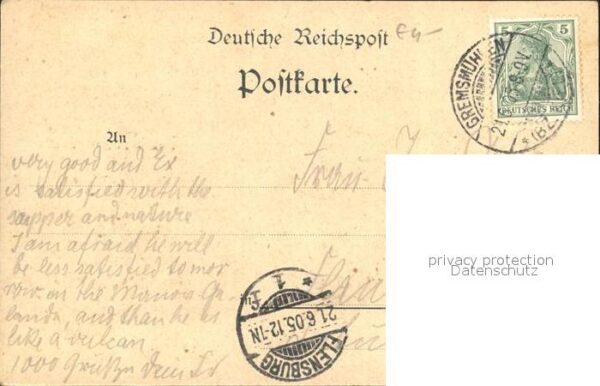 Deutsche Reichspost
Postkarte.
5
DEUTSCHES REICH
GREMSMÜHLEN
21.
An
very good and Ex
is satisfied with the
supper and nature
I am afraid he will
be less satisfied to mor
row. on the
and than he is
like a vulcan.
1000 Grüße Dein
Frau
privacy protection
Datenschutz
FLENSBURG
21.6.05.12-1N
1